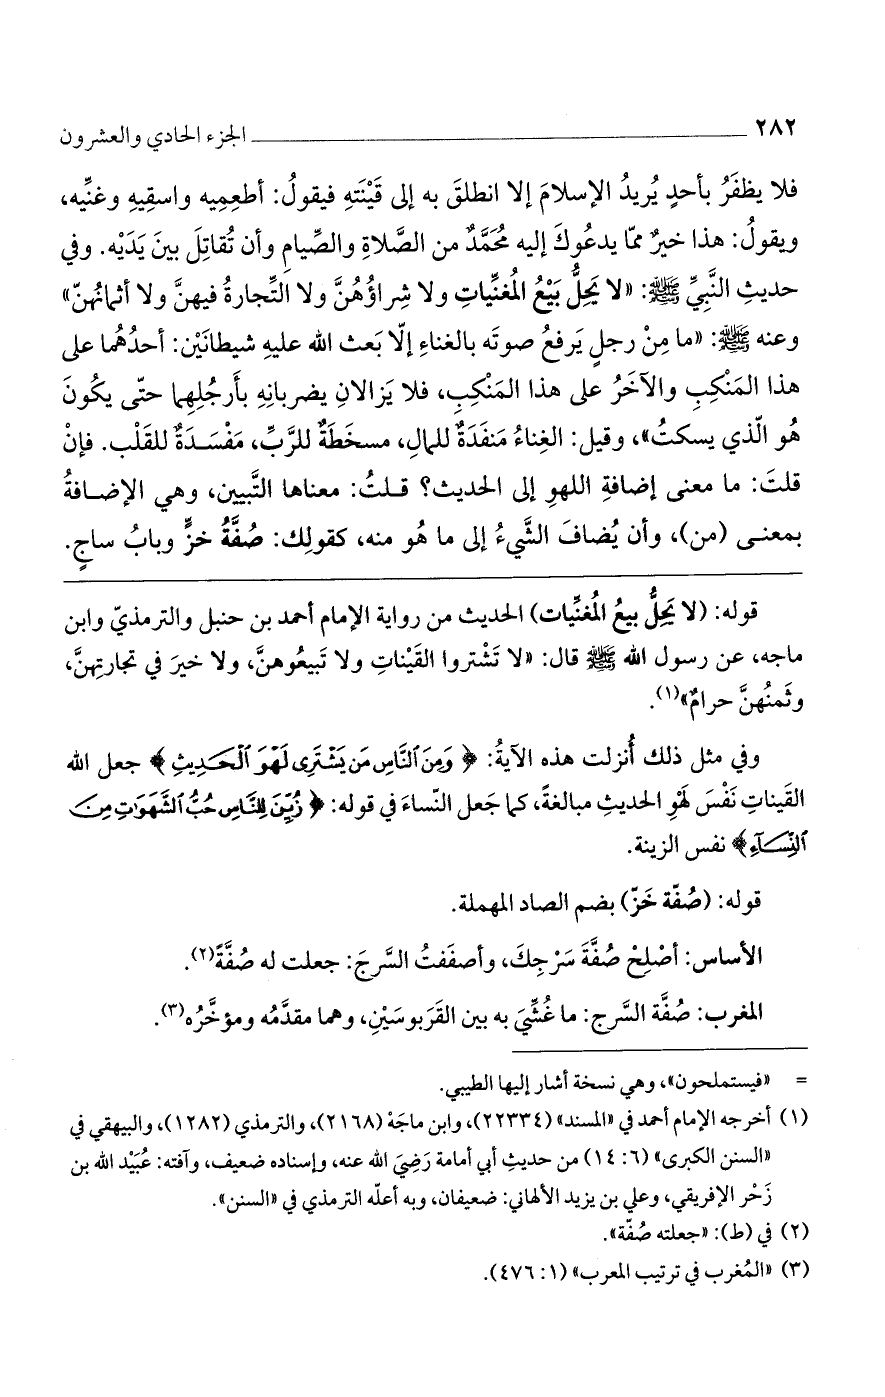 ٢٨٢ الجزء الحادي والعشرون
فلا يظفَرُ بأحدٍ يُريدُ الإسلامَ إلا انطلقَ به إلى قَيْنَتهِ فيقولُ: أطعِميه واسقِيهِ وغنِّيه،
ويقولُ: هذا خيرٌ ممّا يدعُوكَ إليه مُحَمَّدٌ من الصَّلاةِ والصِّيامِ وأن تُقاتِلَ بينَ يَدَيْه. وفي
حديثِ النَّبِيِّ ﷺ: «لا يَحِلُّ بَيْعُ المُغنِّياتِ ولا شِراؤُهُنَّ ولا التِّجارةُ فيهنَّ ولا أثمانُهنّ»
وعنه ﷺ: «ما مِنْ رجلٍ يَرفعُ صوتَه بالغناءِ إلّا بَعث الله عليهِ شيطانَيْن: أحدُهُما على
هذا المَنْكِبِ والآخَرُ على هذا المَنْكِبِ، فلا يَزالانِ يضربانِهِ بأَرجُلِهِما حتّى يكُونَ
هُو الّذي يسكتُ»، وقيل: الغِناءُ مَنفَدَةٌ للمالِ، مسخَطَةٌ للرَّبِّ، مَفْسَدَةٌ للقَلْب. فإنْ
قلتَ: ما معنى إضافةِ اللهوِ إلى الحديث؟ قلتُ: معناها التَّبيين، وهي الإضافةُ
بمعنى (من)، وأن يُضافَ الشَّيءُ إلى ما هُو منه، كقولِك: صُفَّةُ خزٍّ وبابُ ساجٍ.
قوله: (لا يَحِلُّ بيعُ المُغنِّيات) الحديث من رواية الإمام أحمد بن حنبل والترمذيّ وابن
ماجه، عن رسول الله ﷺ قال: «لا تَشْتروا القَيْناتِ ولا تَبيعُوهنَّ، ولا خيرَ في تجارتِهنَّ،
وثَمنُهنَّ حرامٌ»(١).
وفي مثل ذلك أُنزلت هذه الآيةُ: ﴿وَمِنَ ٱلنَّاسِ مَن يَشْتَرِى لَهْوَ ٱلْحَدِيثِ﴾ جعل الله
القَيناتِ نَفْسَ لَهْوِ الحديثِ مبالغةً، كما جَعل النّساءَ في قوله: ﴿زُيِّنَ لِلنَّاسِ حُبُّ ٱلشَّهَوَٰتِ مِنَ
ٱلنِّسَآءِ﴾ نفس الزينة.
قوله: (صُفّة خَزّ) بضم الصاد المهملة.
الأساس: أصْلِحْ صُفَّةَ سَرْجِكَ، وأصفَفتُ السَّرجَ: جعلت له صُفَّةً(٢).
المغرب: صُفَّة السَّرج: ما غُشِّيَ به بين القَرَبوسَيْنِ، وهما مقدَّمُه ومؤخَّرُه(٣).
= «فيستملحون»، وهي نسخة أشار إليها الطيبي.
(١) أخرجه الإمام أحمد في «المسند» (٢٢٣٣٤)، وابن ماجَهْ (٢١٦٨)، والترمذي (١٢٨٢)، والبيهقي في
«السنن الكبرى» (٦: ١٤) من حديثِ أبي أمامة رَضِيَ الله عنه، وإسناده ضعيف، وآفته: عُبَيْد الله بن
زَحْر الإفريقي، وعلي بن يزيد الألهاني: ضعيفان، وبه أعلّه الترمذي في «السنن».
(٢) في (ط): «جعلته صُفّة».
(٣) «المُغرب في ترتيب المعرب» (١: ٤٧٦).